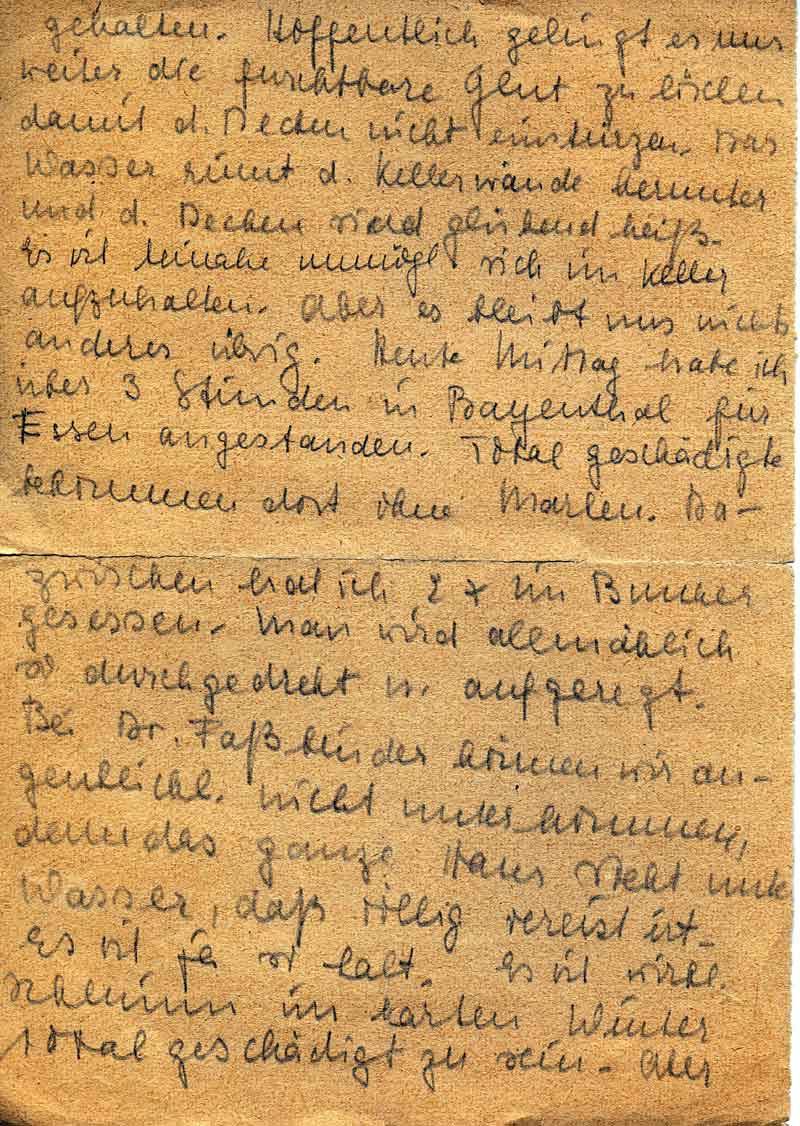 gehalten. Hoffentlich gelingt es uns
weiter, die furchtbare Glut zu löschen
damit d. Decken nicht einstürzen. Das
Wasser rinnt d. Kellerwände herunter
und d. Decken sind glühend heiß.
Es ist beinahe unmögl. sich im Keller
aufzuhalten. Aber es bleibt uns nichts
anderes übrig. Heute Mittag habe ich
über 3 Stunden in Bayenthal für
Essen angestanden. Total geschädigte
bekommen dort ohne Marken. Da-
zwischen hab ich 2 x im Bunker
gesessen. Man wird allmählich
so durchgedreht u. aufgeregt.
Bei Dr. Faßbinder können wir au-
genblickl. nicht unterkommen,
denn das ganze Haus steht unter
Wasser, daß völlig vereist ist.
Es ist ja so kalt. Es ist wirkl.
schlimm im harten Winter
total geschädigt zu sein. Aber